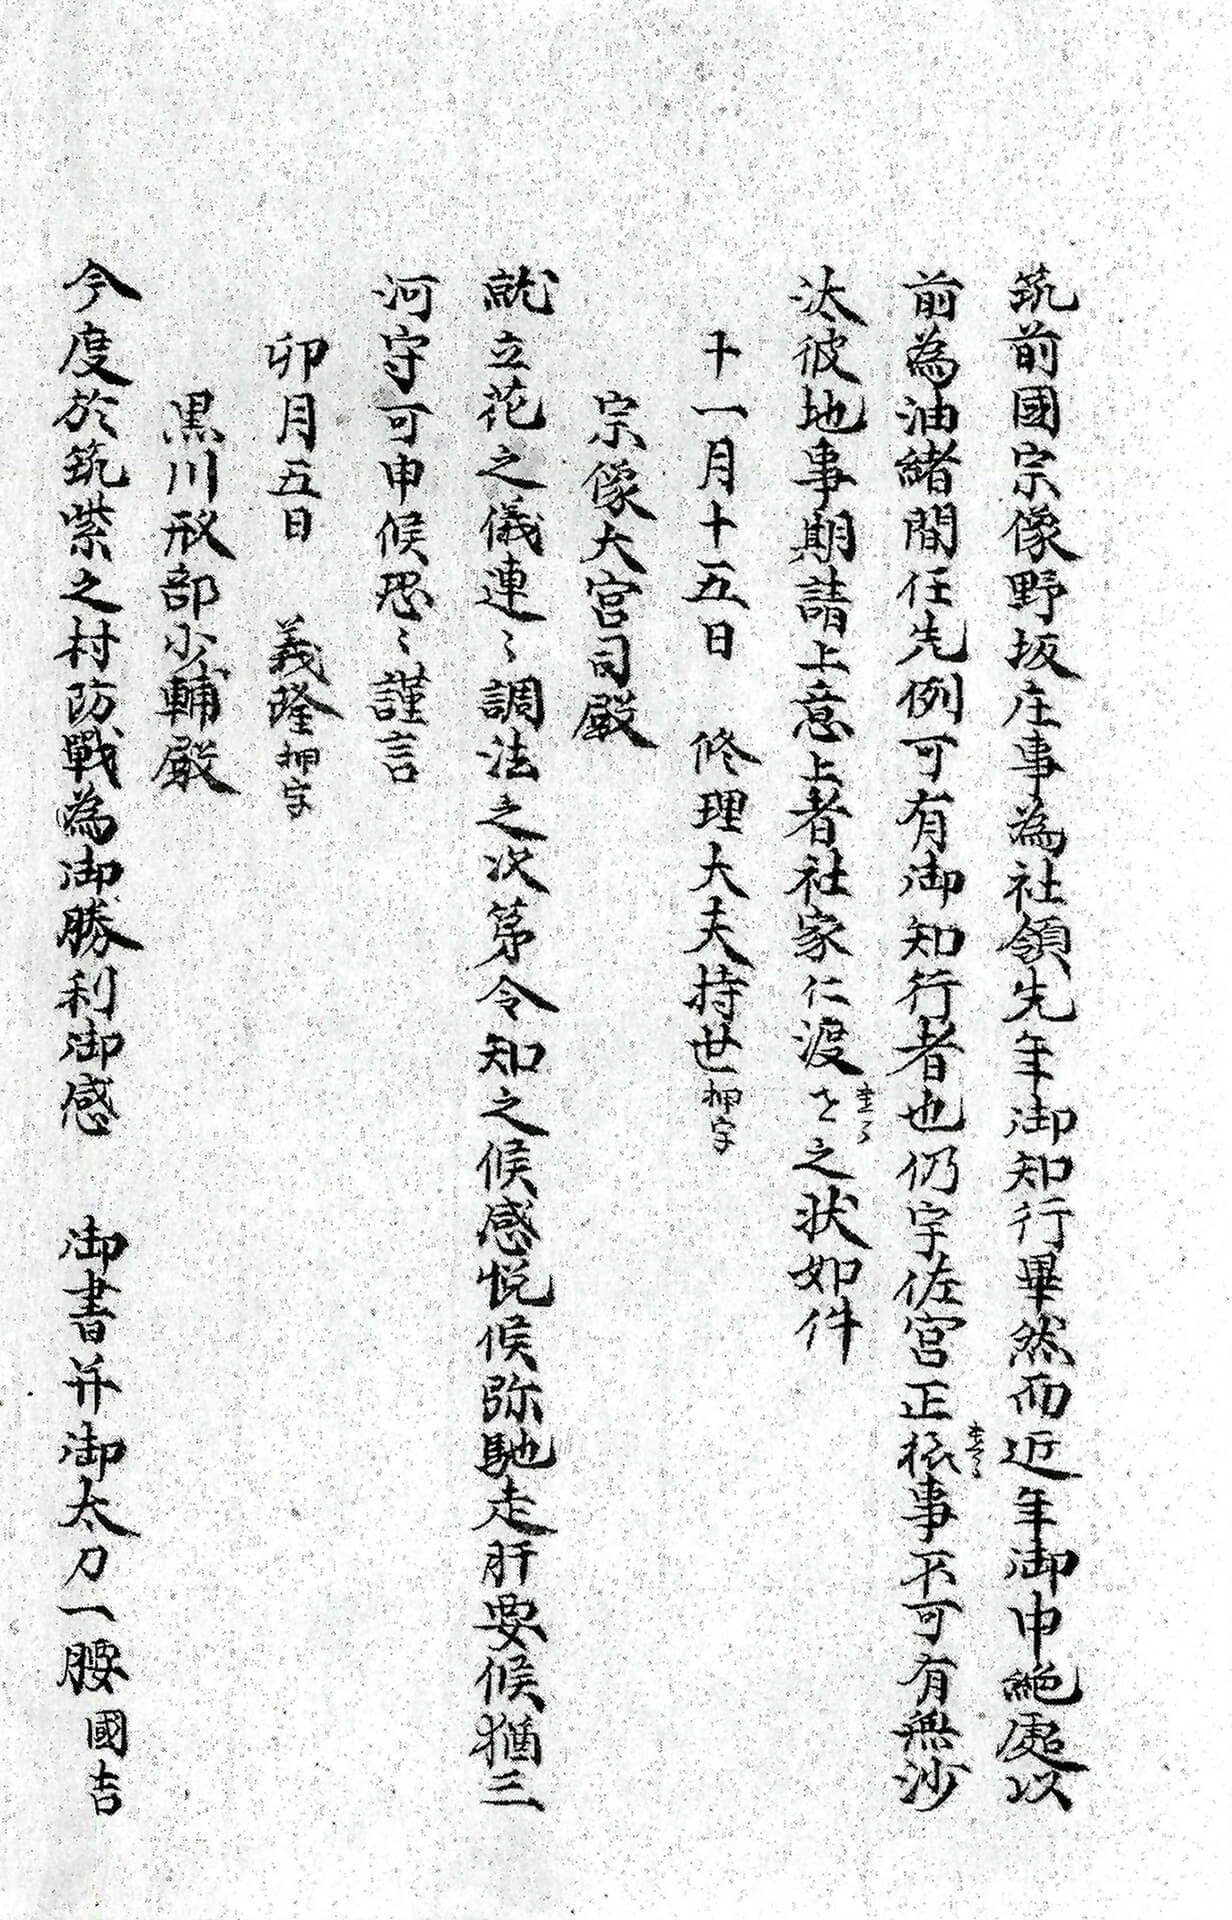 筑前國宗像野坂庄事為社領先年御知行畢然而近年御中絶處以
前為油緒間任先例可有御知行者也仍宇佐宮正根事不可有無沙
汰彼地事期請上意上者社家仁渡さ之状如件
十一月十五日　修理大夫持世押字
宗像大宮司殿
就立花之儀連〻調法之次第令知之候感悦候弥馳走肝要候猶三
河守可申候恐〻謹言
卯月五日　義隆押字
黒川刑部少輔殿
今度於筑紫之村防戰為御勝利御感　御書并御太刀一腰國吉